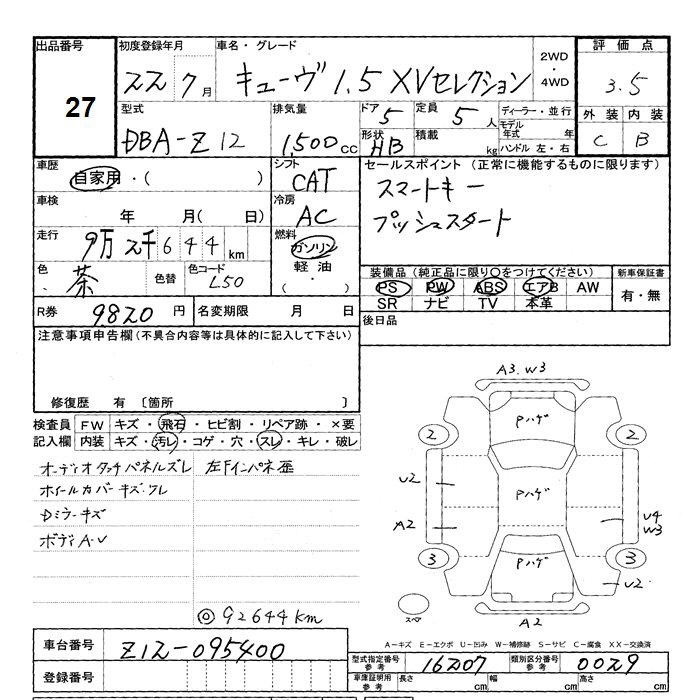 出品番号 27
初度登録年月 22 7 月
車名・グレード キューヴ 1.5 XVセレクション
2WD・4WD
評価点 3.5
型式 DBA-Z12
排気量 1,500 cc
ドア 5
定員 5 人
形状 HB
積載 kg
ディーラー・並行
モデル年式 年
ハンドル 左・右
外装 C
内装 B
車歴 自家用・( )
シフト CAT
セールスポイント (正常に機能するものに限ります)
スマートキー
プッシュスタート
車検 年 月( 日)
冷房 AC
走行 9万 2千 6 4 4 km
燃料 ガソリン
軽油
・( )
色 茶
色替
色コード L50
装備品(純正品に限り○をつけてください)
新車保証書
PS PW ABS エアB AW
有・無
SR ナビ TV 本革
R券 9820 円
名変期限 月 日
後日品
注意事項申告欄(不具合内容等は具体的に記入して下さい)
修復歴 有 〔箇所 〕
検査員 FW キズ・飛石・ヒビ割・リペア跡・×要
記入欄 内装 キズ・汚レ・コゲ・穴・スレ・キレ・破レ
オーディオタッチパネルズレ 左Fインパネ亜
ホイールカバーキズ・ワレ
Dミラーキズ
ボディA・U
◎92644km
A3.W3
Pハゲ
2 2
U2 Pハゲ
A2
U4
W3
3 3
Pハゲ
U2
スペア
A2
A-キズ E-エクボ U-凹み W-補修跡 S-サビ C-腐食 XX-交換済
車台番号 Z12-095400
型式指定番号 参考 16207
類別区分番号 参考 0029
登録番号
車庫証明用 参考 長さ cm 幅 cm 高さ cm